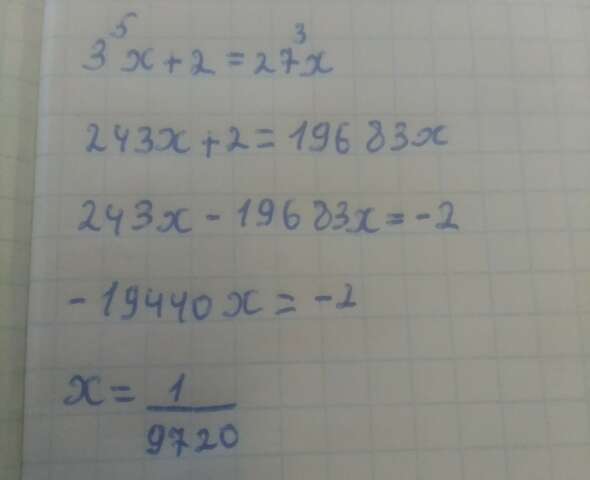 3⁵x + 2 = 27³x
243x + 2 = 19683x
243x - 19683x = -2
-19440x = -2
x = 1/9720